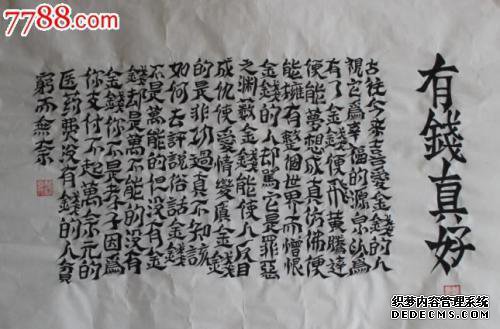 7788.com
有錢真好
古往今來喜愛金錢的人
視它為幸福的源泉以為
有了金錢便飛黃騰達
便能夢想成真仿佛便
能擁有整個世界而憎恨
金錢的人却罵它是罪惡
之淵藪金錢能使人反目
成仇使愛情變質金錢
的是非功過真不知該
如何去評說俗話金錢
不是萬能的但没有金
錢却是萬不能的没有
金錢你不是孝子因為
你支付不起萬余元的
医药费没有錢的人真
窮而無奈
织梦内容管理系统
DEDECMS.COM